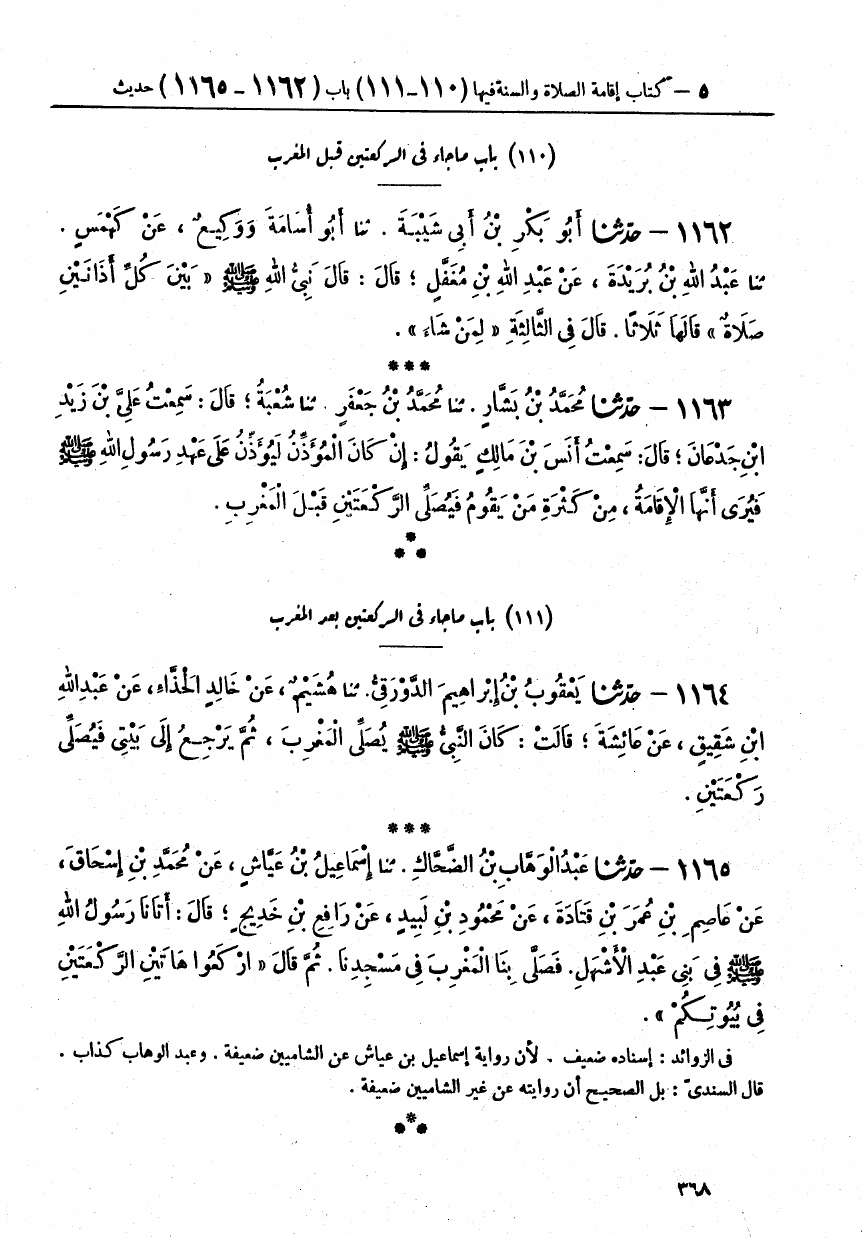 ٥ – كتاب إقامة الصلاة والسنة فيها (١١٠-١١١) باب (١١٦٢ – ١١٦٥) حديث
(١١٠) باب ماجاء فى الركعتين قبل المغرب
١١٦٢ – حدّثنا أَبُو بَكْرِ بْنُ أَبِى شَيْبَةَ . ثنا أَبُو أُسَامَةَ وَوَكِيعٌ ، عَنْ كَهْمَسٍ .
ثنا عَبْدُ اللهِ بْنُ بُرَيْدَةَ ، عَنْ عَبْدِ اللهِ بْنِ مُغَفَّلٍ ؛ قَالَ : قَالَ نَبِىُّ اللهِ ﷺ « بَيْنَ كُلِّ أَذَانَيْنِ
صَلَاةٌ » قَالَهَا ثَلَاثًا . قَالَ فِى الثَّالِثَةِ « لِمَنْ شَاءَ » .
***
١١٦٣ – حدّثنا مُحَمَّدُ بْنُ بَشَّارٍ . ثنا مُحَمَّدُ بْنُ جَعْفَرٍ . ثنا شُعْبَةُ ؛ قَالَ : سَمِعْتُ عَلِىَّ بْنَ زَيْدِ
ابْنِ جَدْعَانَ ؛ قَالَ : سَمِعْتُ أَنَسَ بْنَ مَالِكٍ يَقُولُ : إِنْ كَانَ الْمُؤَذِّنُ لَيُؤَذِّنُ عَلَى عَهْدِ رَسُولِ اللهِ ﷺ
فَيُرَى أَنَّهَا الْإِقَامَةُ ، مِنْ كَثْرَةِ مَنْ يَقُومُ فَيُصَلِّى الرَّكْعَتَيْنِ قَبْلَ الْمَغْرِبِ .
*
* *
(١١١) باب ماجاء فى الركعتين بعد المغرب
١١٦٤ – حدّثنا يَعْقُوبُ بْنُ إِبْرَاهِيمَ الدَّوْرَقِىُّ. ثنا هُشَيْمٌ ، عَنْ خَالِدٍ الْحَذَّاءِ ، عَنْ عَبْدِ اللهِ
ابْنِ شَقِيقٍ ، عَنْ عَائِشَةَ ؛ قَالَتْ : كَانَ النَّبِىُّ ﷺ يُصَلِّى الْمَغْرِبَ ، ثُمَّ يَرْجِعُ إِلَى بَيْتِى فَيُصَلِّى
رَكْعَتَيْنِ .
***
١١٦٥ – حدّثنا عَبْدُ الْوَهَّابِ بْنُ الضَّحَّاكِ . ثنا إِسْمَاعِيلُ بْنُ عَيَّاشٍ ، عَنْ مُحَمَّدِ بْنِ إِسْحَاقَ ،
عَنْ عَاصِمِ بْنِ عُمَرَ بْنِ قَتَادَةَ ، عَنْ مَحْمُودِ بْنِ لَبِيدٍ ، عَنْ رَافِعِ بْنِ خَدِيجٍ ؛ قَالَ : أَتَانَا رَسُولُ اللهِ
ﷺ فِى بَنِى عَبْدِ الْأَشْهَلِ. فَصَلَّى بِنَا الْمَغْرِبَ فِى مَسْجِدِنَا . ثُمَّ قَالَ « ارْكَعُوا هَاتَيْنِ الرَّكْعَتَيْنِ
فِى بُيُوتِكُمْ » .
فى الزوائد : إسناده ضعيف . لأن رواية إسماعيل بن عياش عن الشاميين ضعيفة . وعبد الوهاب كذاب .
قال السندىّ : بل الصحيح أن روايته عن غير الشاميين ضعيفة .
*
* *
٣٦٨